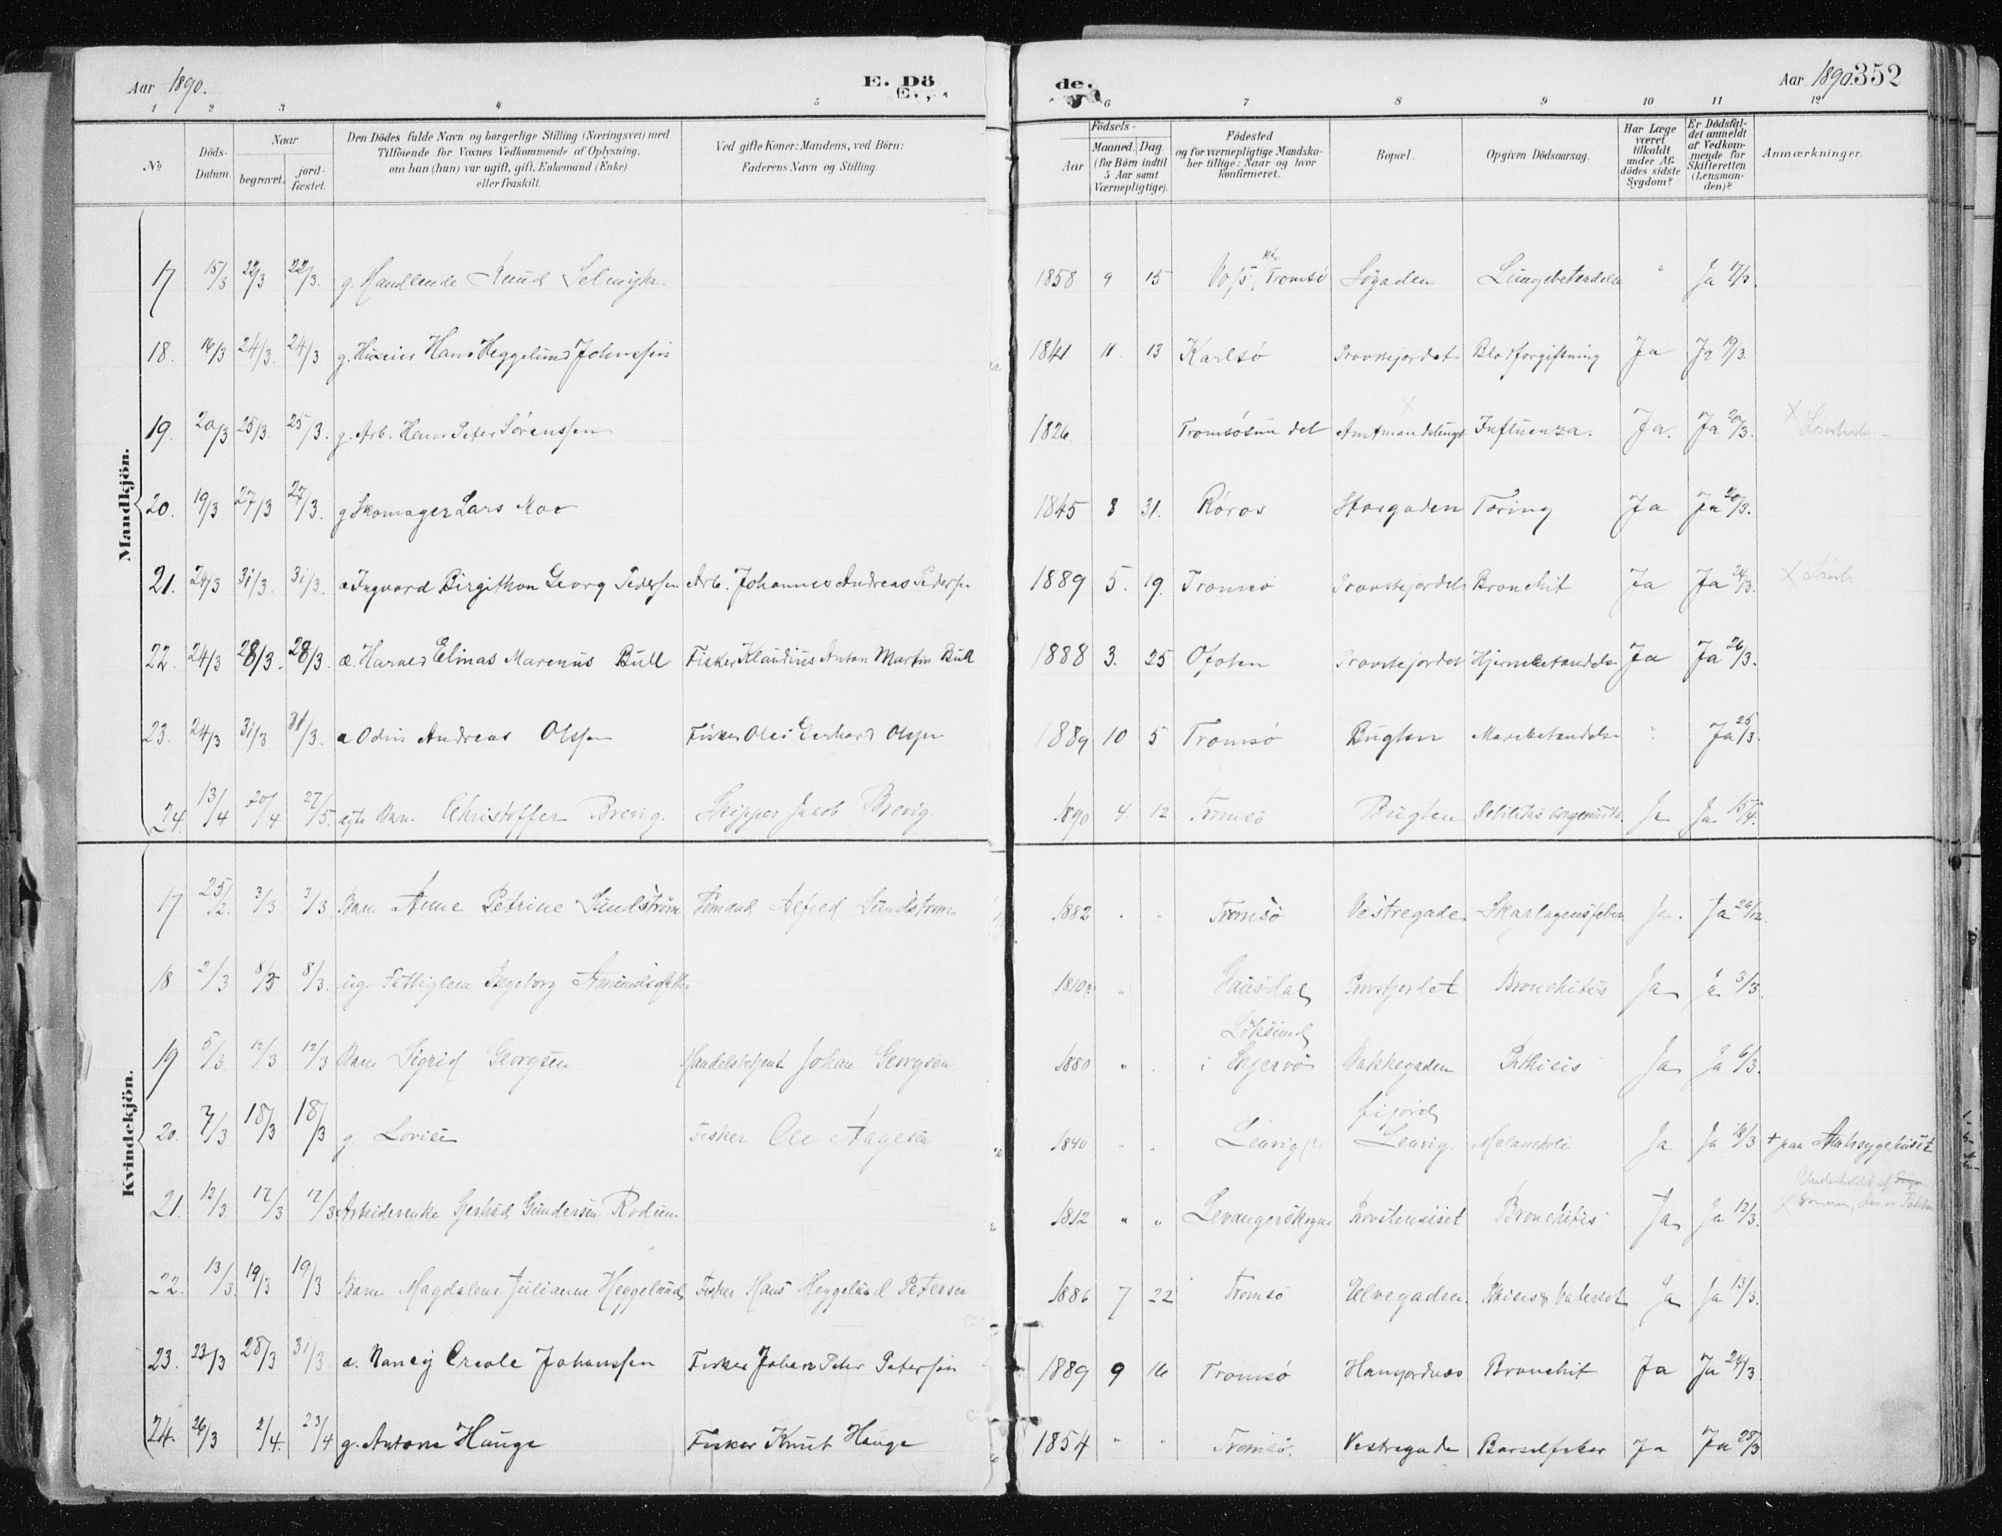 Aar 1890. E. Dö
de. Aar 1890. 352
1 2 3 4 5 6 7 8 9 10 11 12
No
Döds-Datum.
Naar
begravet.
jord-fæstet.
Den Dödes fulde Navn og borgerlige Stilling (Næringsvei) med
Tilföiende for Voxnes Vedkommende af Oplysning,
om han (hun) var ugift, gift, Enkemand (Enke)
eller fraskilt.
Ved gifte Koner: Mandens, ved Börn:
Faderens Navn og Stilling
Födsels-
Aar
Maaned. Dag.
(for Börn indtil
5 Aar samt
Værnepligtige).
Födested
og for værnepligtige Mandska-
ber tillige: Naar og hvor
konfirmeret.
Bopæl.
Opgiven Dödsaarsag.
Har Læge
været
tilkaldt
under Af-
dödes sidste
Sygdom?
Er Dödsfal-
det anmeldt
af Vedkom-
mende for
Skifteretten
(Lensman-
den)?
Anmærkninger.
Mandkjön.
17 15/3 22/3 22/3. g. Handlende Knud 1858 9 15 Vos, Tromsø Søgaden Lungebetændelse " Ja
18. 16/3 24/3. 24/3 g. Huseier Hans Heggelund Johnssen 1841 11. 13 Karlsø Provstejordet Blodforgiftning Ja Ja 19/3.
19. 20/3 25/3. 25/3. g. Arb. Hans Peter Sørenssen 1826 Tromsøsundet Influenza. Ja. Ja 20/3.
20. 19/3 27/3 27/3. g Skomager Lars Moo 1845 8 31. Røros Storgaden Tæring Ja Ja 20/3.
21. 24/3 31/3. 31/3. æ Ingvard Birgithon Georg Pedersen Arb. Johannes Andreas Pedersen 1889 5. 19. Tromsø Provstejordet Bronchit Ja Ja 24/3.
22. 24/3 28/3. 28/3. æ. Harald Elinas Marenus Bull Fisker Klaudius Anton Martin Bull 1888 3. 25 Ofoten Provstejordet Hjernebetændelse Ja Ja 26/3.
23. 24/3 31/3 31/3. æ Odin Andreas Olssen Fisker Olei Gerhard Olssen 1889 10 5 Tromsø Bugten Mavebetændelse " Ja 25/3.
24. 13/4 20/4 27/5. ægte Barn Christoffer Brevig. Skipper Jacob Brevig. 1890 4. 12 Tromsø Bugten Debilitas congenita Ja Ja 15/4.
Kvindekjön.
17 25/2. 3/3 3/3 Barn Anne Petrine Sundstrøm Sømand Alfred Sundstrøm 1882 " " Tromsø Vestregade Skarlagensfeber Ja. Ja
18 2/3 8/3 8/3. ug. Fattiglem Ingeborg 1810 " Gausdal Bronchitis Ja Ja 3/3.
19 5/3. 12/3 12/3 Barn Sigrid Georgsen Handelsbetjent Johan Georgsen 1880 " " i Skjervø Bakkegaden Phthisis Ja Ja 6/3.
20. 7/3 18/3 18/3 g. Lovise Fisker Ole Aagesen 1840 " " Lenvig Lenvig. Melancholi Ja Ja + paa Amtssygehuset
21. 12/3 17/3 17/3 Arbeiderenke Gjertrud Gundersen Rodum 1812 " " Levanger Bronchitis Ja Ja 12/3.
22. 13/3 19/3 19/3 Barn Magdalene Julianne Heggelund Fisker Hans Heggelund Petersen 1886 7 22 Tromsø Elvegaden. Ja Ja 13/3.
23. 23/3 28/3 31/3. æ. Nancy Creole Johanssen Fisker Johan Peter Peterssen 1889 9 16 Tromsø Hansjordnæs Bronchit Ja Ja 24/3
24. 26/3 2/4. 23/4 g. Antone Hauge Fisker Knut Hauge 1854 " " Tromsø. Vestregade Barselfeber Ja Ja 28/3